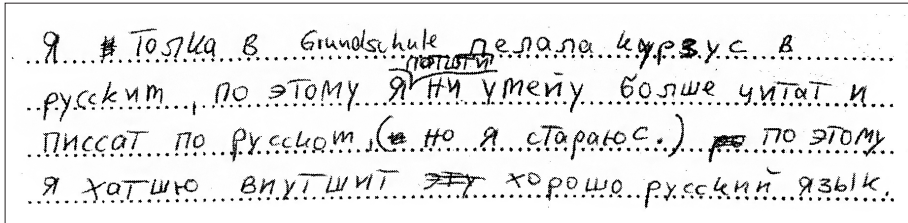 Я Толка в Grundschule делала курзус в
русским, по этому я почти ни умейу болше читат и
писсат по русском, (но я стараюс.) по этому
я хатшю внутшит хорошо русский язык.